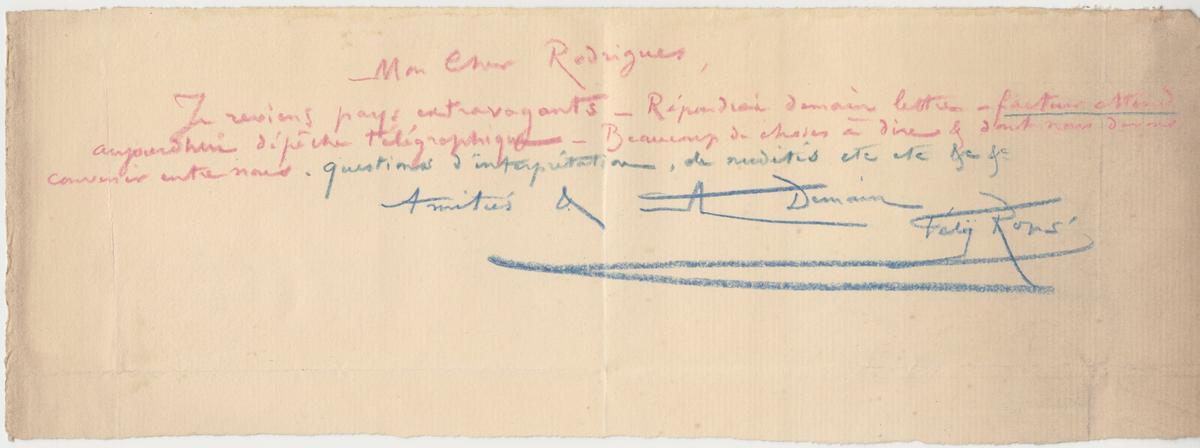 Mon Cher Rodrigues,
Je reviens pays extravagants – Répondrai demain lettre – facteur attend
aujourdhui dépêche télégraphique – Beaucoup de choses à dire & dont nous devons
convenir entre nous. questions d'interprétation, de nudités etc etc &c &c
Amitiés & A Demain
Félÿ Rops